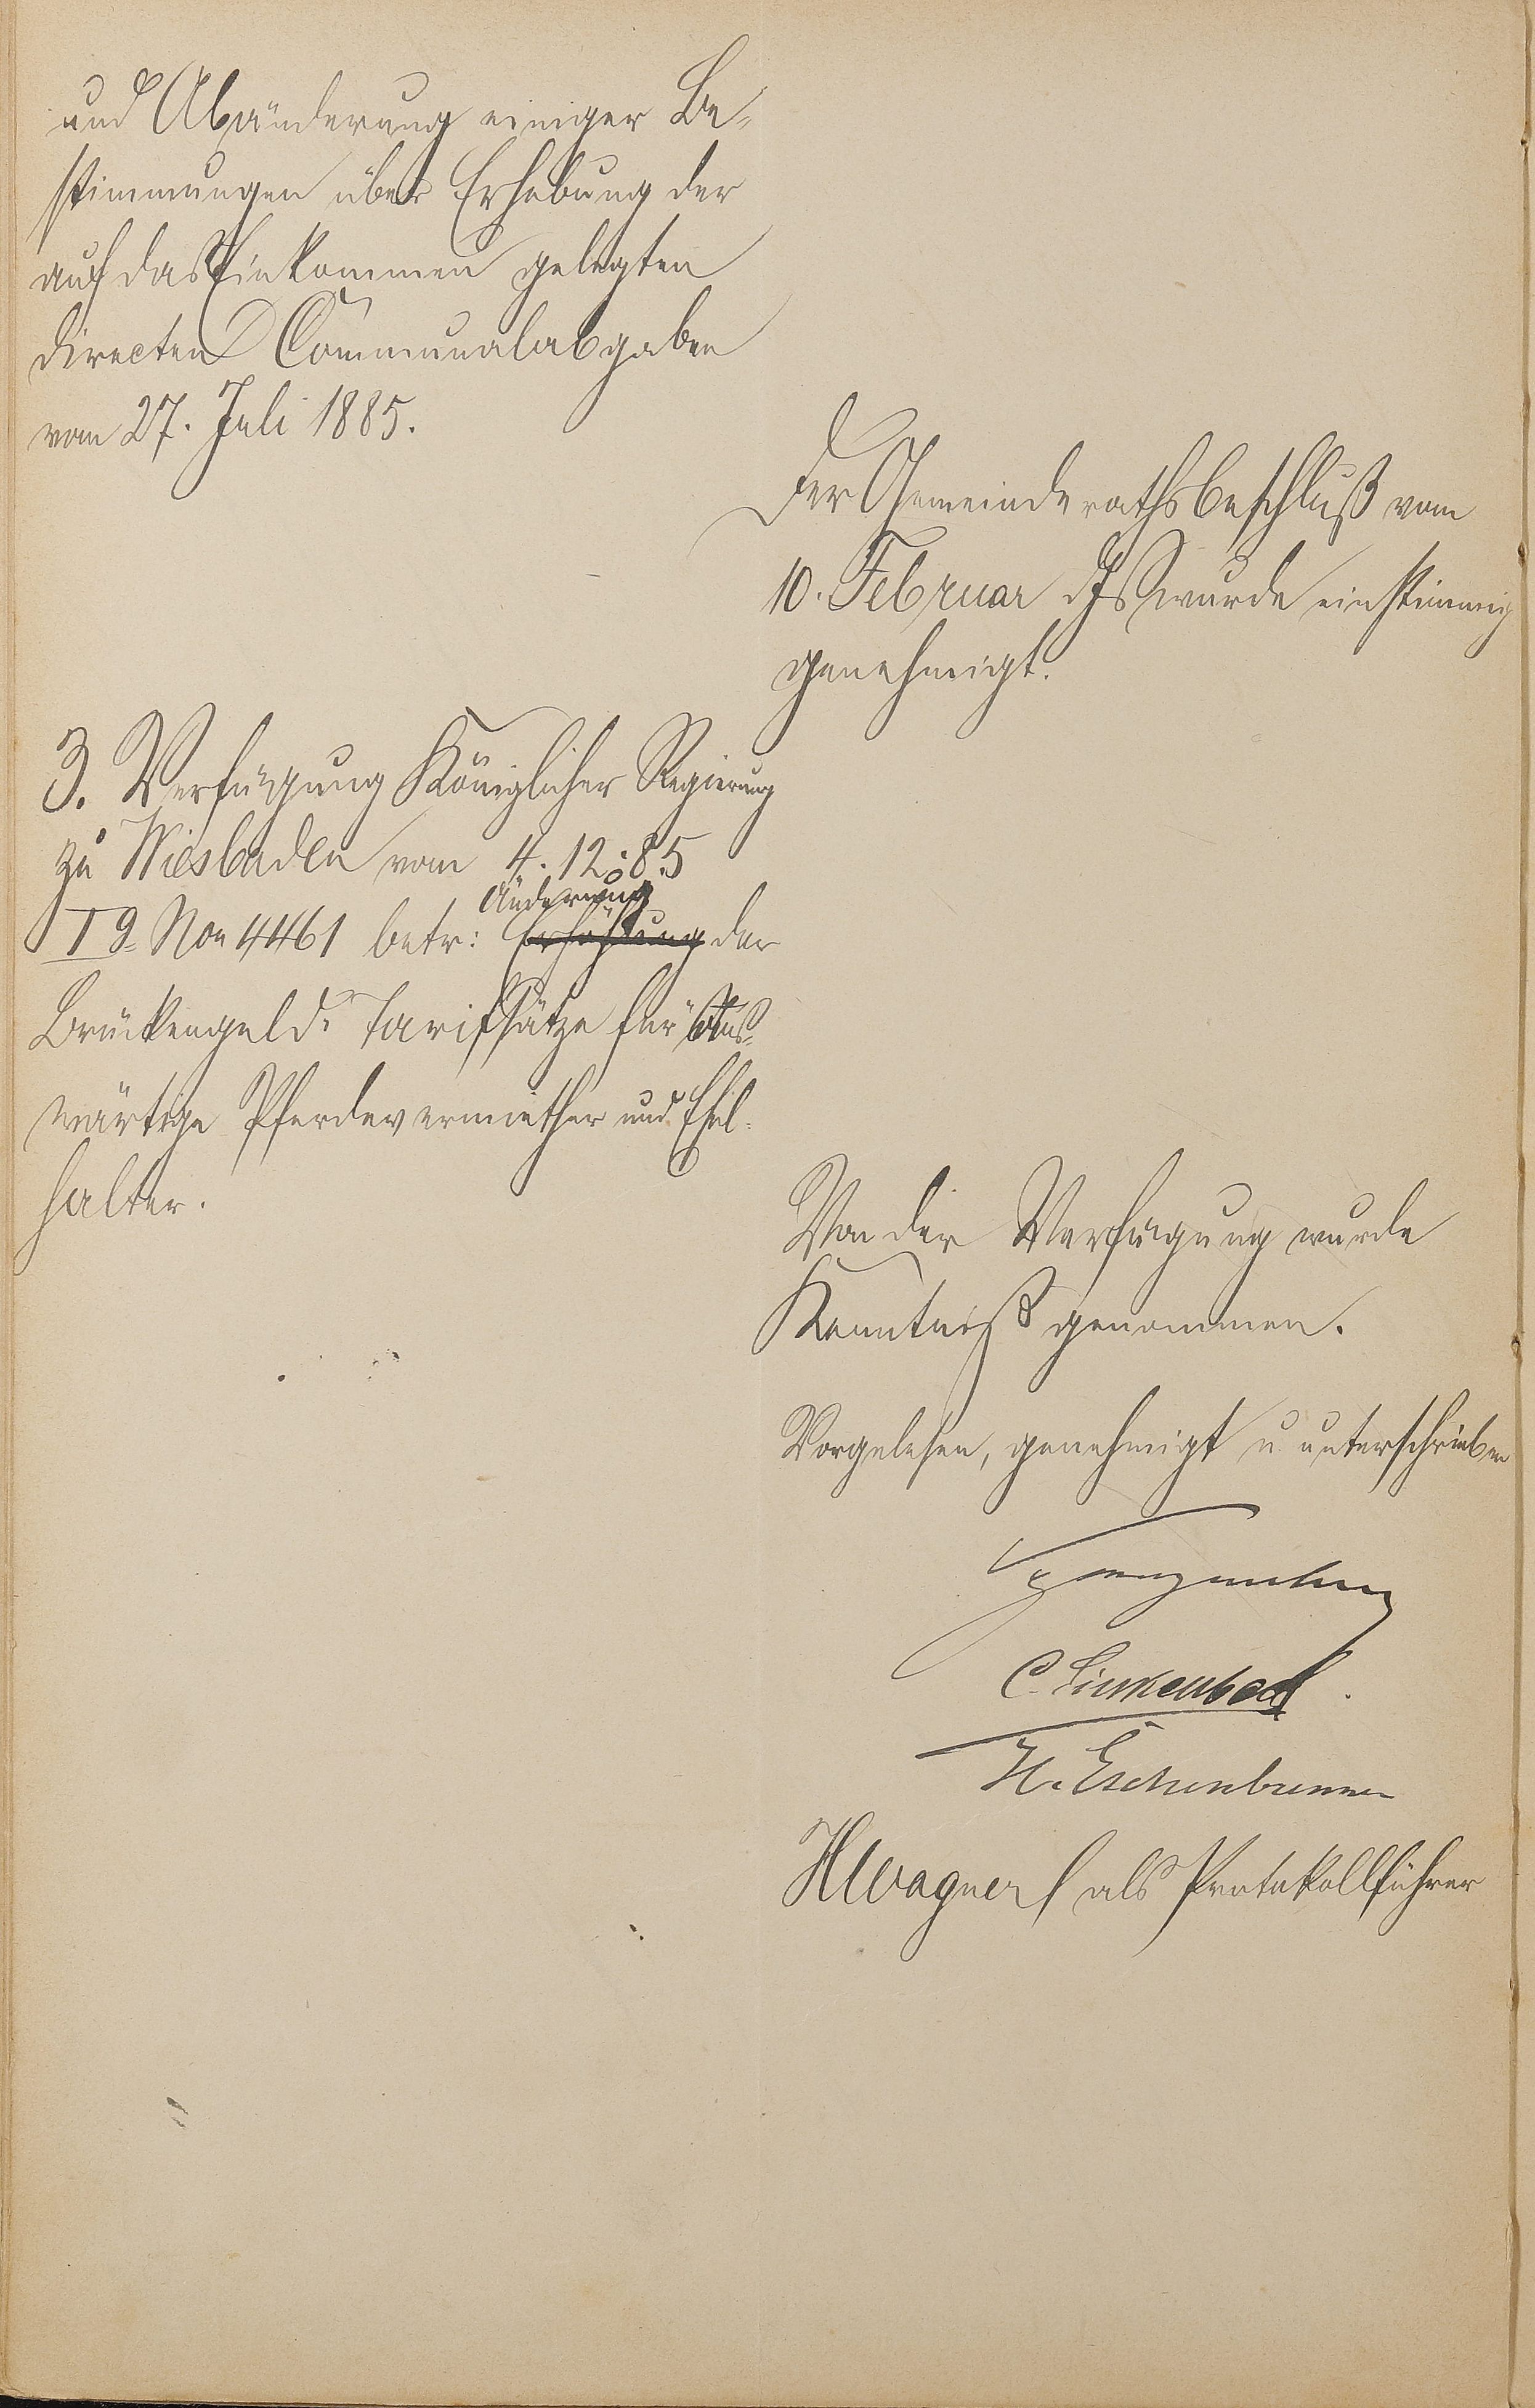 und Abänderung einiger Be-
stimmungen über Erhebung der
auf das Einkommen gelegten
directen Communalabgaben
vom 27. Juli 1885.
Der Gemeinderathsbeschluß vom
10. Februar ds Js wurde einstimmig
genehmigt.
3. Verfügung Königlicher Regierung
zu Wiesbaden vom 4.12.85
Änderung
I g. No 4461 betr: Erhöhung der
Brückengeld-Tarifsätze für Aus-
wärtige Pferdevermiether und Esel-
halter.
Von der Verfügung wurde
Kenntniß genommen.
Vorgelesen, genehmigt u unterschrieben
C. Linkenbach.
H. Eschenbrenner
HWagner als Protokollführer